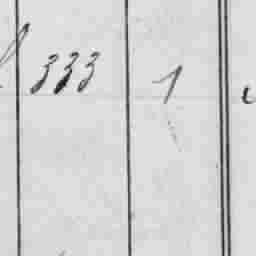 333 1